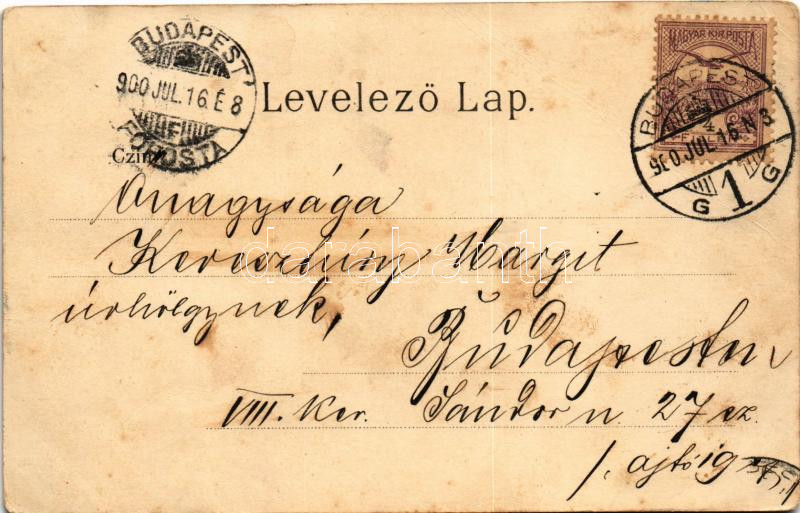 BUDAPEST
900 JUL. 16. É 8
FŐPOSTA
MAGYAR KIR. POSTA
BUDAPEST
900 JUL. 16. N 8
G 1 G
Levelező Lap.
Czím
Őnagysága
Keresztúry Margit
úrhölgynek,
Budapesten
VIII. ker. Sándor u. 27 sz.
darabanth.com